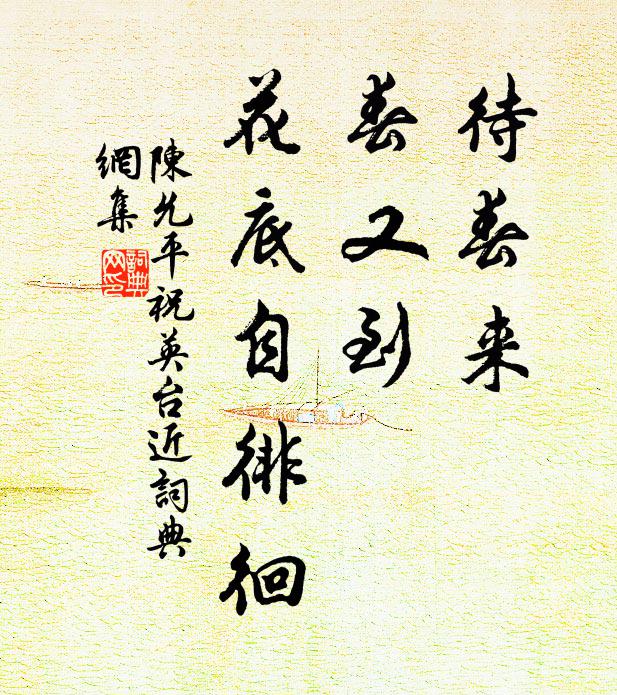 待春来
春又到
花底自徘徊
陳允平祝英台近詞典
網集
詞典
网印